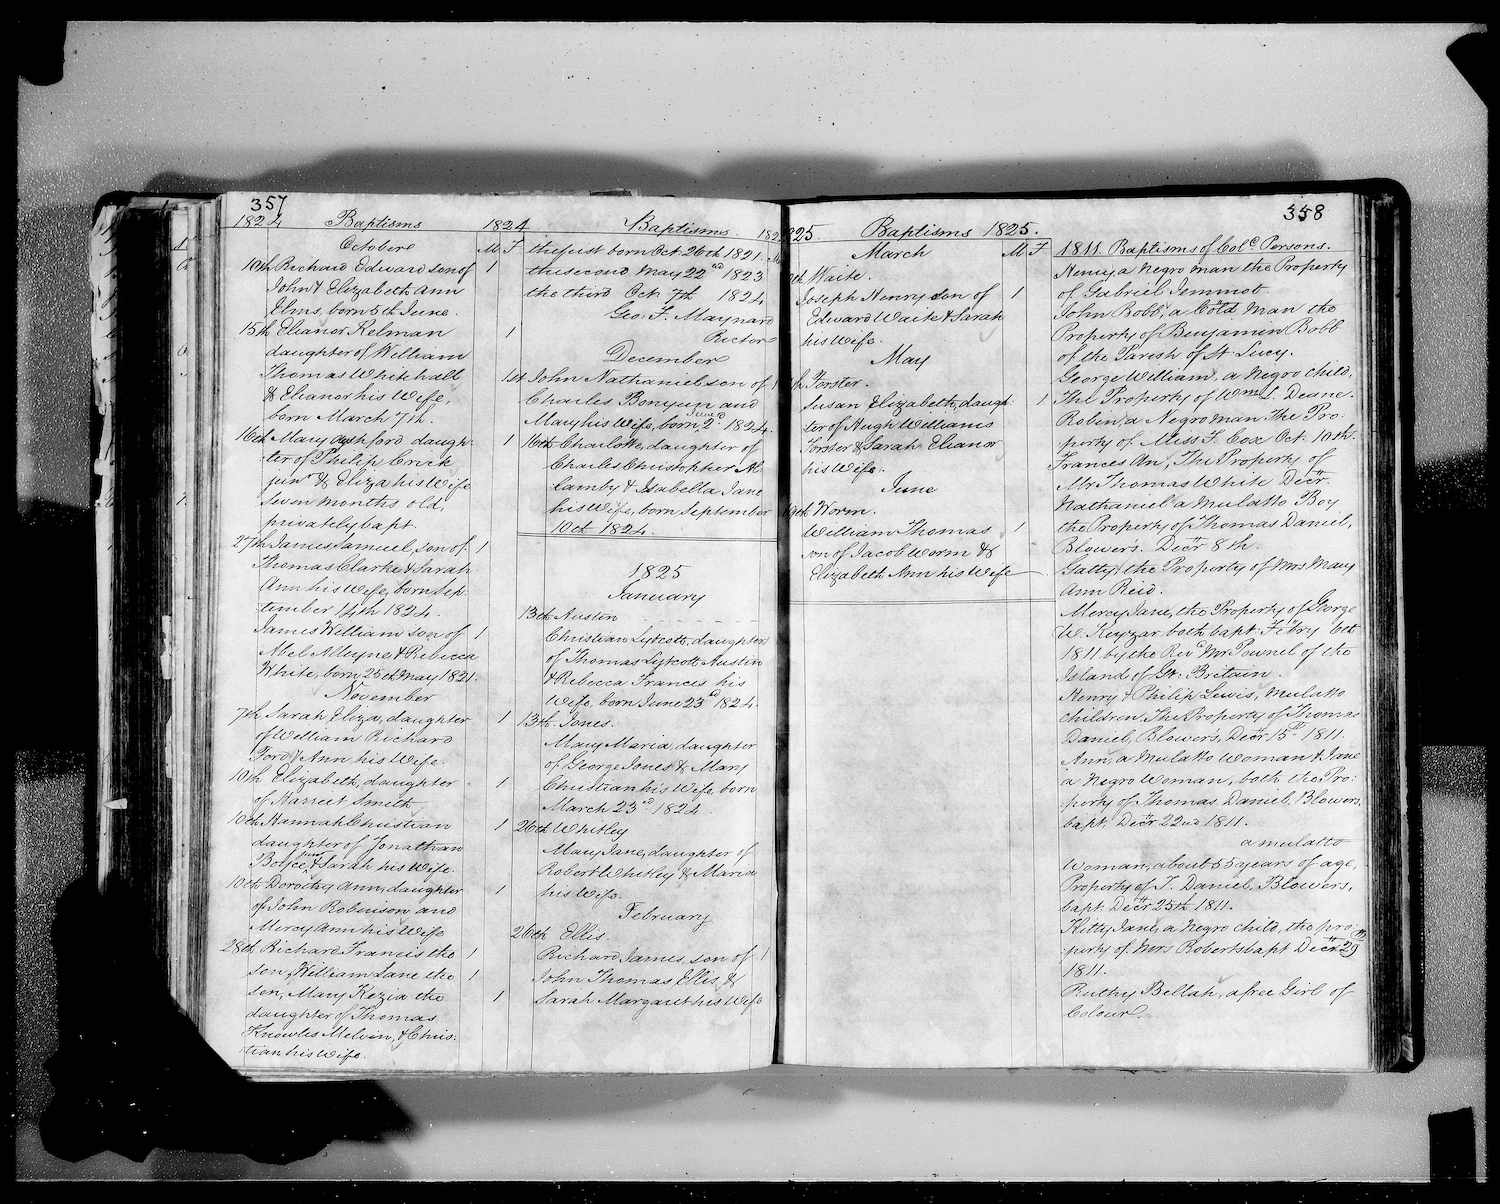 357
1824 Baptisms
October M F
10th Richard Edward son of 1
John & Elizabeth Ann
Elms, born 5th June.
15th Eleanor Kelman 1
daughter of William
Thomas Whitehall
& Eleanor his Wife,
born March 7th.
16th Mary Ashford daugh- 1
ter of Philip Crick
junr & Eliza his Wife
seven months old,
privately bapt.
27th James Samuel, son of 1
Thomas Clarke & Sarah
Ann his Wife, born Sep-
tember 14th 1824.
James William son of 1
Abel Alleyne & Rebecca
White, born 25th May 1821.
November
7th Sarah Eliza, daughter 1
of William Richard
Ford & Ann his Wife
10th Elizabeth, daughter 1
of Harriet Smith
10th Hannah Christian 1
daughter of Jonathan
Boyce & Sarah his Wife
10th Dorothy Ann, daughter 1
of John Robinson and
Mercy Ann his Wife
28th Richard Francis the 1
son, William Lane the 1
son, Mary Kezia the 1
daughter of Thomas
Knowles Melvin, & Chris-
tian his Wife.
1824 Baptisms
the first born Oct. 26th 1821.
the second May 22nd 1823
the third Oct. 7th 1824
Geo. F. Maynard
Rector
December
1st John Nathaniel son of 1
Charles Bonyun and
Mary his Wife, born 2d June 1824.
16th Charlotte, daughter of
Charles Christopher Al-
lamby & Isabella Jane
his Wife, born September
10th 1824.
1825
January
13th Austin
Christian Lytcott, daughter
of Thomas Lytcott Austin
& Rebecca Frances his
Wife, born June 23rd 1824.
13th Jones.
Mary Maria, daughter
of George Jones & Mary
Christian his Wife, born
March 23rd 1824.
26th Whitley
Mary Jane, daughter of
Robert Whitley & Maria
his Wife.
February
26th Ellis.
Richard James, son of 1
John Thomas Ellis, &
Sarah Margaret his Wife
358
825. Baptisms 1825.
March M F
Waite.
Joseph Henry son of 1
Edward Waite & Sarah
his Wife.
May
Forster.
Susan Elizabeth, daugh 1
ter of Hugh Williams
Forster & Sarah Eleanor
his Wife.
June
Worm.
William Thomas 1
son of Jacob Worm &
Elizabeth Ann his Wife
1811. Baptisms of Cold. Persons.
Henry a Negro man the Property
of Gabriel Jemmot
John Bobb, a Cold Man the
Property of Benjamin Bobb
of the Parish of St. Lucy.
George William, a Negro child,
The Property of Wm. L. Deane.
Robin, a Negro man The Pro-
perty of Miss F. Cox Oct. 10th.
Frances An, The Property of
Mr Thomas White Decr.
Nathaniel a Mulatto Boy
the Property of Thomas Daniel,
Blowers. Decr 8th.
Gatty, the Property of Mrs Mary
Ann Reid.
Mercy Jane, the Property of George
W. Keyzar both bapt. Febry 6th
1811 by the Revd Mr Townel of the
Island of Gt. Britain.
Henry & Philip Lewis, Mulatto
children The Property of Thomas
Daniel, Blowers, Decr 15th 1811.
Ann, a Mulatto Woman & Jane
a Negro Woman, both the Pro-
perty of Thomas Daniel, Blowers,
bapt. Decr 22nd 1811.
a mulatto
Woman, about 55 years of age,
Property of T. Daniel, Blowers,
bapt Decr 25th 1811.
Kitty Jane, a Negro child, the pro
perty of Mrs Roberts bapt Decr 29th
1811.
Ruthy Bellah, a free Girl of
Colour.